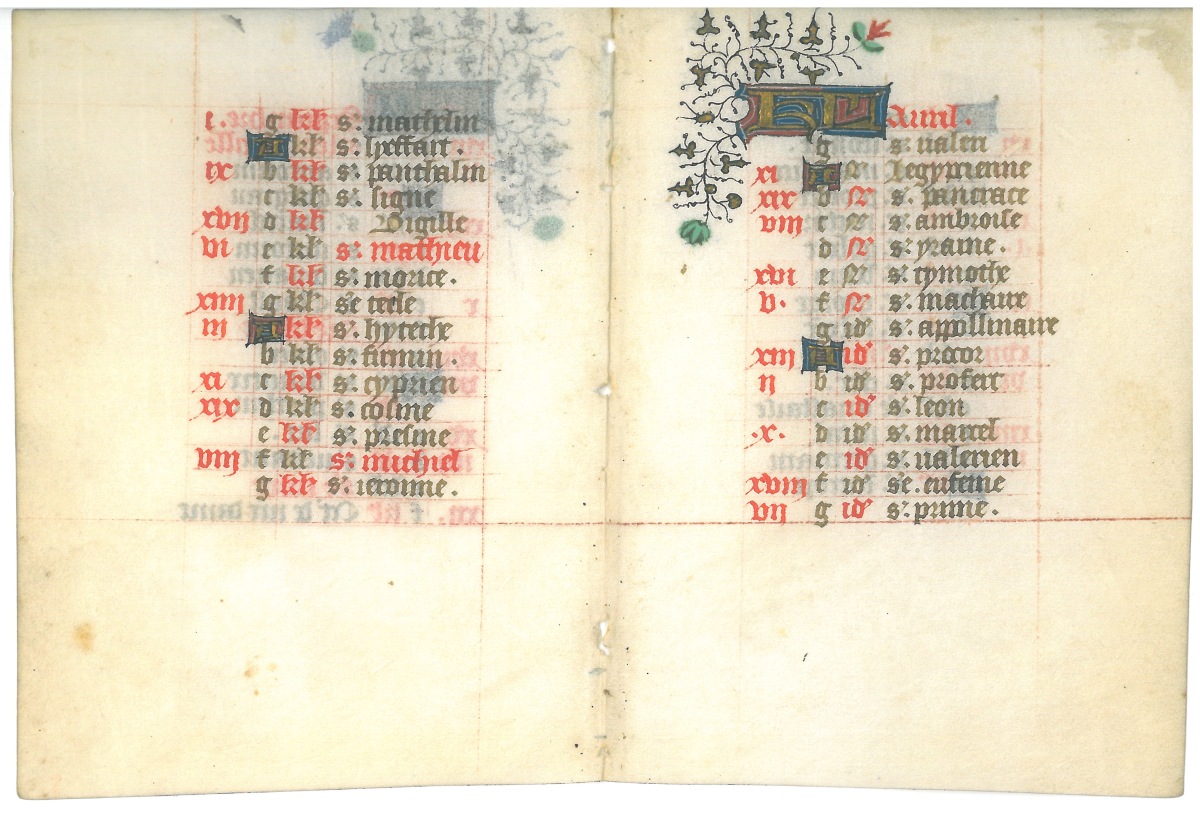 i. g kł s'. mathelin
A kł s'. lyeffart.
ix b kł s'. panthalin
c kł s'. signe
xvij d kł Vigille
vi e kł s'. mathieu
f kł s'. morice.
xiiij g kł s'e tecle
iij A kł s'. hyteche
b kł s'. firmin.
xi c kł s'. cyprien
xix d kł s'. cosme
e kł s'. presme
viij f kł s'. michiel
g kł s'. ierome.
KL Auril.
g s'. ualeri
xi A
xix s'. pancrace
viij c s'. ambroise
d s'. yrame.
xvi e s'. tymothe
v. f s'. machaire
g id' s'. appollinaire
xiij A id' s'. precor
ij b id' s'. profect
c id' s'. leon
.x. d id' s'. marcel
e id' s'. ualerien
xviij f id' s'e. eufeme
vij g id' s'. prime.